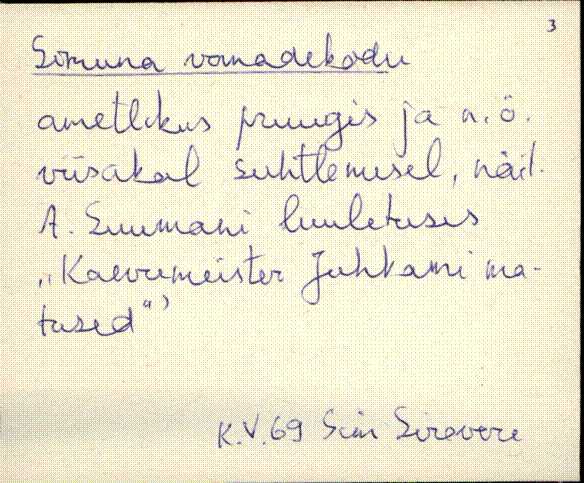 3
Simuna vanadekodu
ametlikus pruugis ja n.ö.
viisakal suhtlemisel, näit.
A. Suumani luuletuses
„Kaevumeister Juhkami ma-
tused"
K.V.69 Sim Sirevere